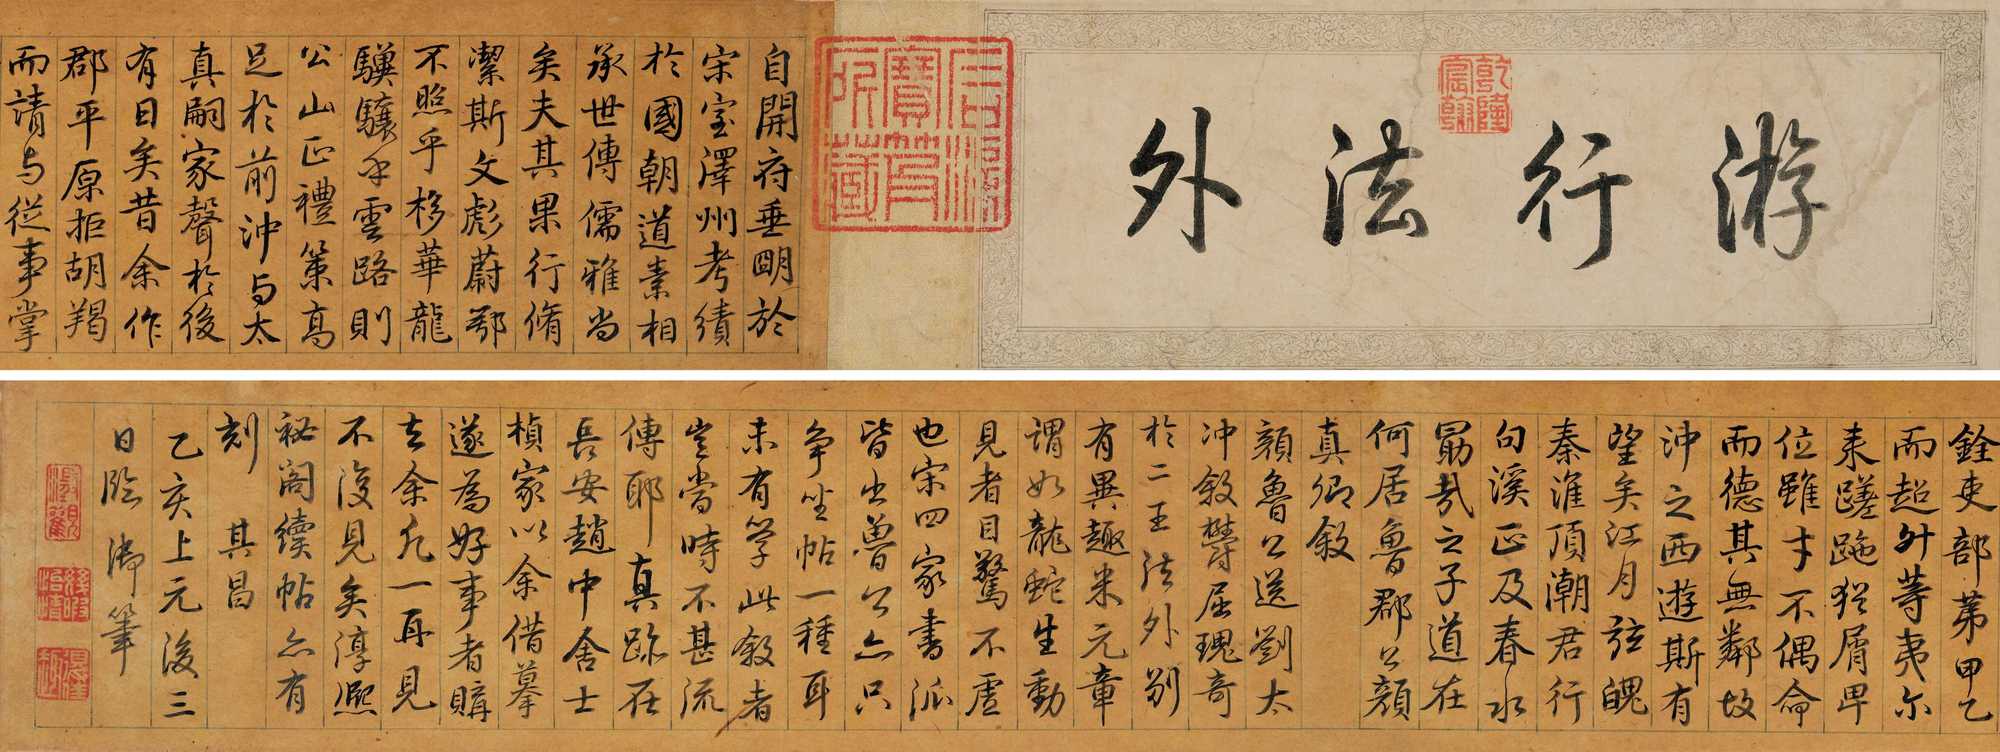 游行法外
乾隆宸翰
石渠寶笈所藏
自開府垂眀於
宋室澤州考績
於國朝道素相
承世傳儒雅尚
矣夫其果行脩
潔斯文彪蔚鄂
不照乎栘華龍
驥驤乎雲路則
公山正禮策高
足於前沖与太
真嗣家聲於後
有日矣昔余作
郡平原拒胡羯
而請与從事掌
銓吏部第甲乙
而超升等夷尒
来蹉跎猶屑卑
位雖才不偶命
而德其無鄰故
沖之西遊斯有
望矣江月弦魄
秦淮頂潮君行
句溪正及春水
勗哉之子道在
何居魯郡公顏
真卿敘
顏魯公送劉太
沖敘欝屈瑰奇
於二王法外別
有異趣米元章
謂如龍蛇生動
見者目驚不虛
也宋四家書派
皆出魯公亦只
爭坐帖一種耳
未有學此敘者
豈當時不甚流
傳耶真跡在
長安趙中舍士
楨家以余借摹
遂為好事者購
去余凡一再見
不復見矣淳熙
祕閣續帖亦有
刻 其昌
乙亥上元後三
日臨 御筆